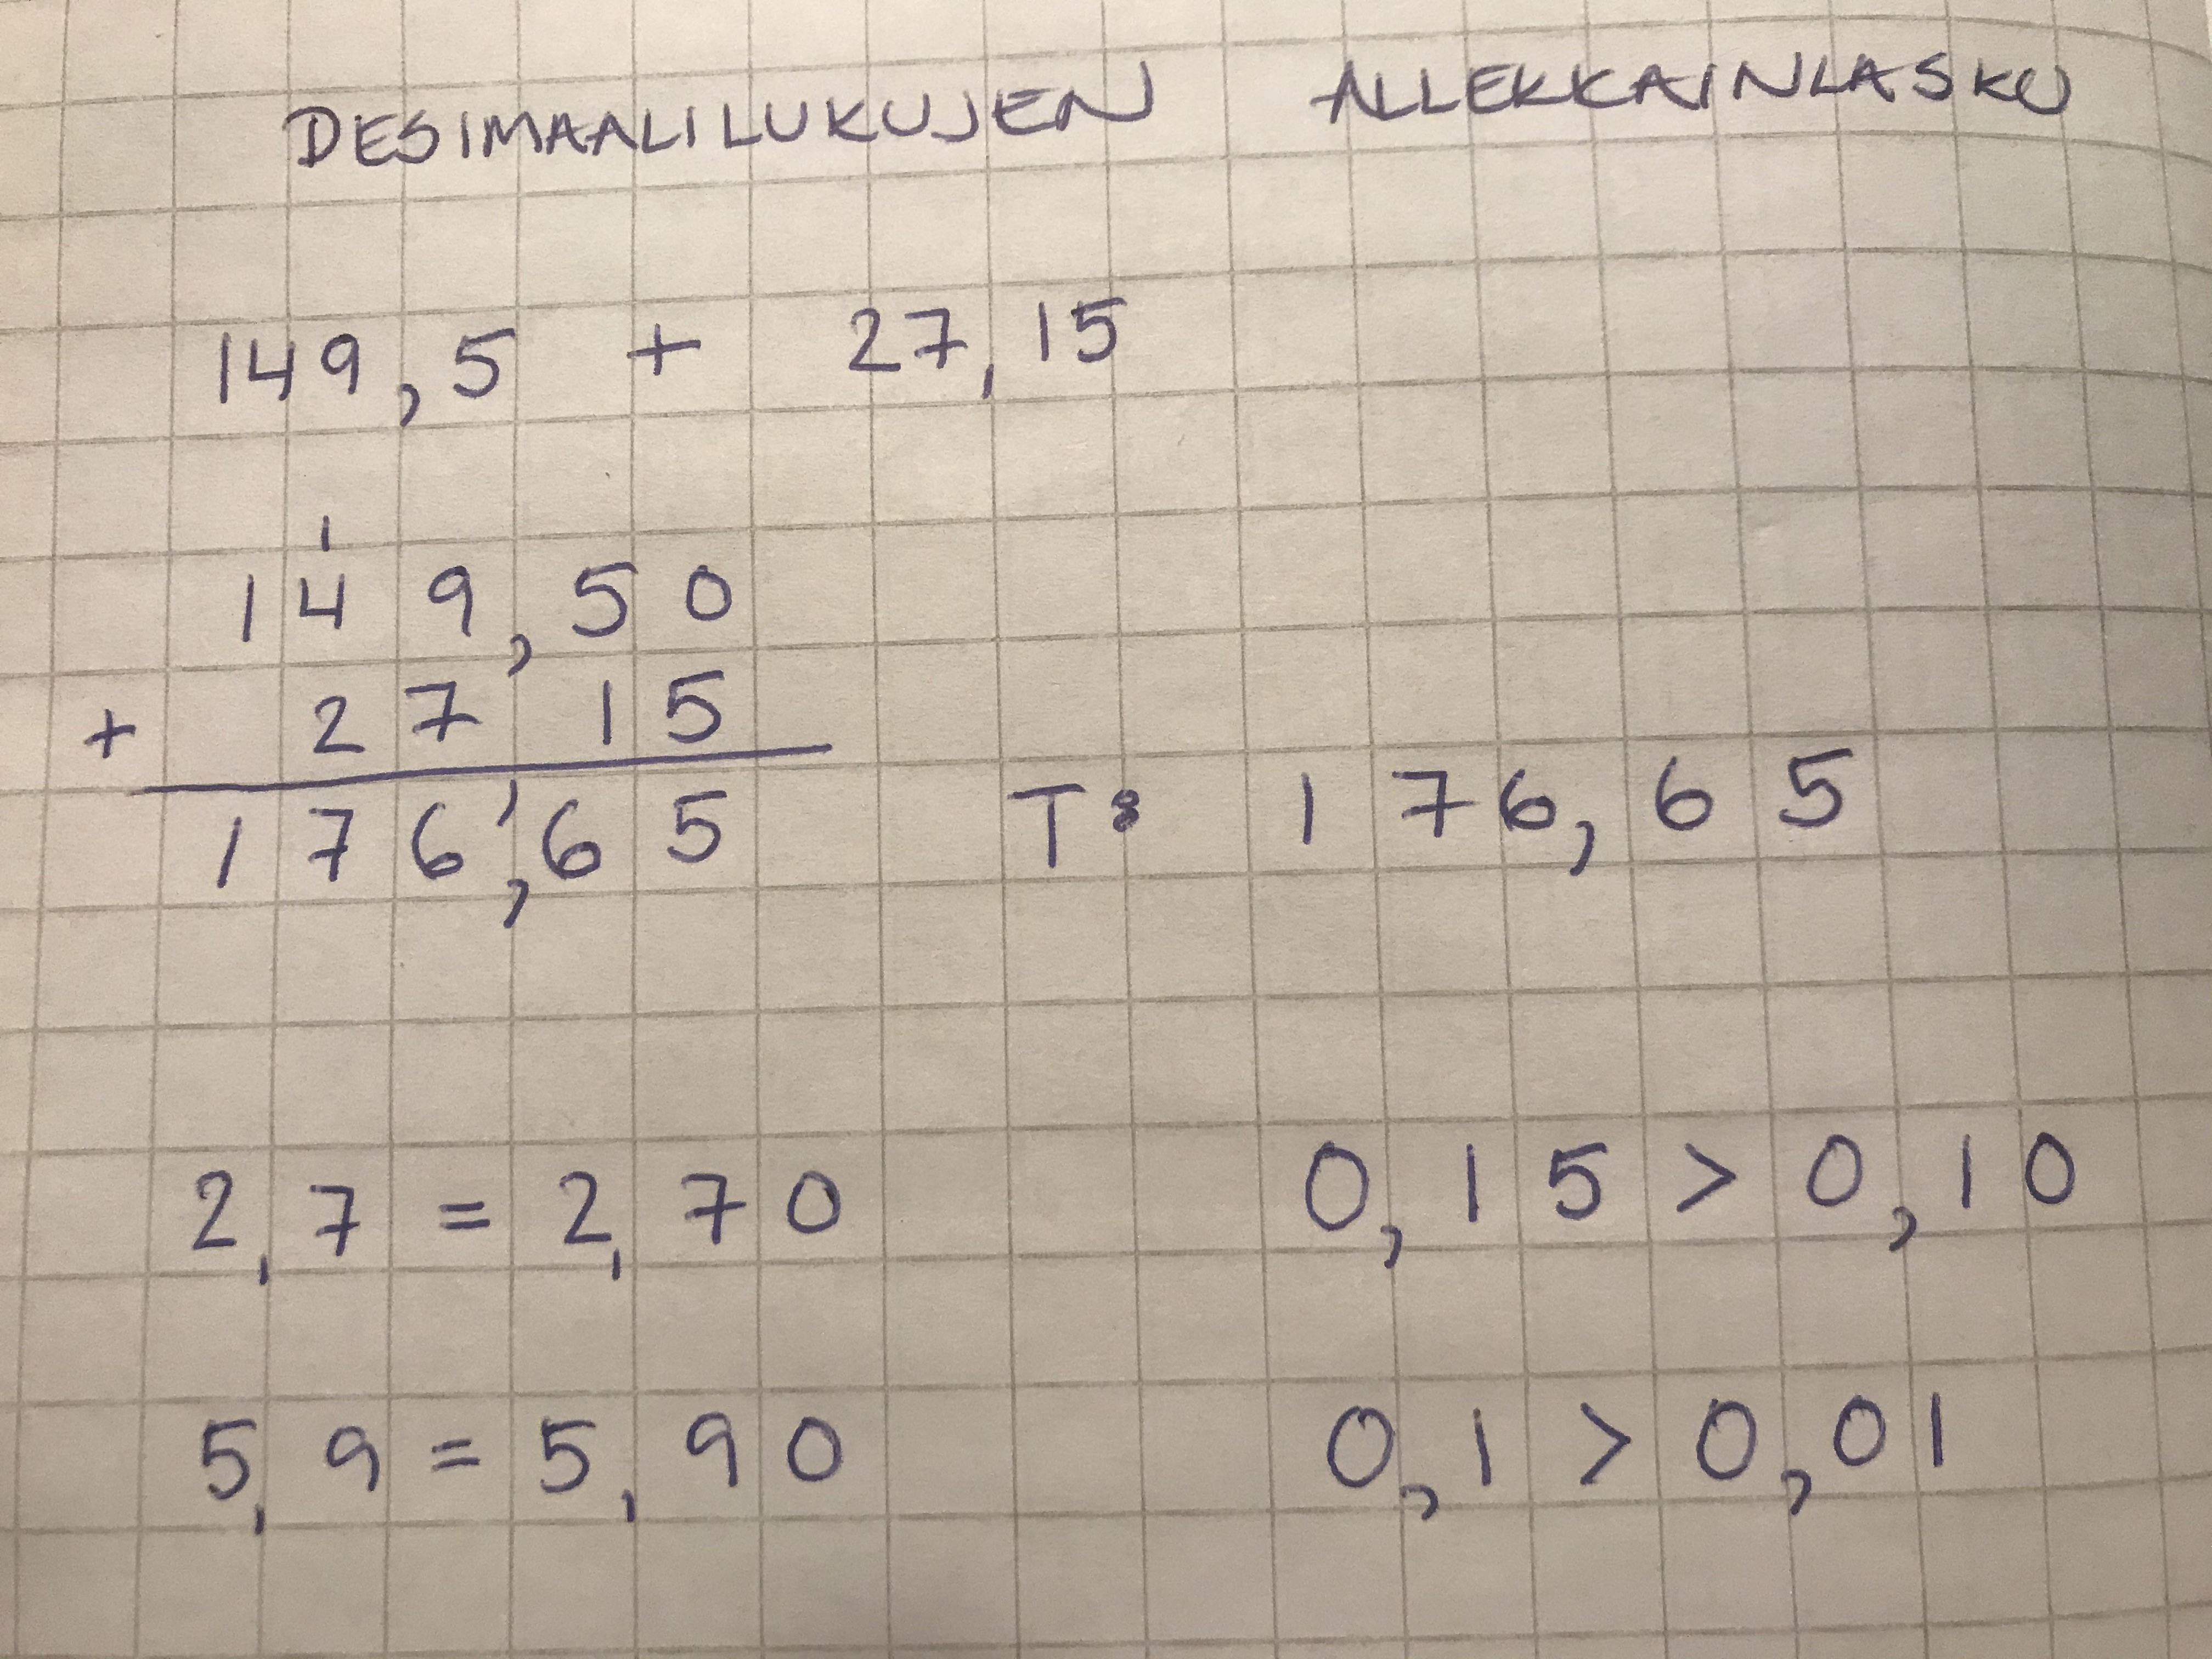 DESIMAALILUKUJEN ALLEKKAINLASKU
149,5 + 27,15
1
149,50
+ 27,15
176,65 T: 176,65
2,7 = 2,70 0,15 > 0,10
5,9 = 5,90 0,1 > 0,01